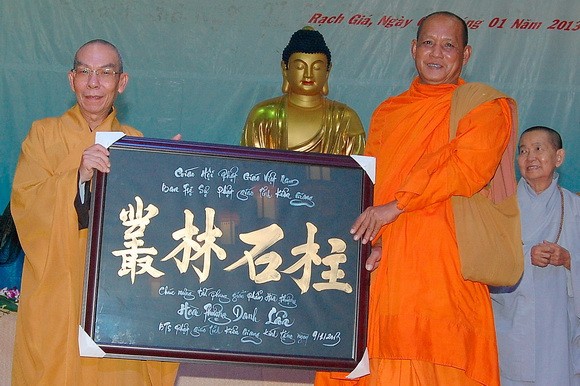 Rạch Giá, Ngày 01 Năm 2013
Giáo Hội Phật Giáo Việt Nam
Ban Trị Sự Phật giáo tỉnh Kiên Giang
叢林石柱
Chúc mừng tấn phong giáo phẩm Hòa thượng
Hòa Thượng Danh Lân
BTS Phật giáo tỉnh Kiên Giang kính tặng ngày